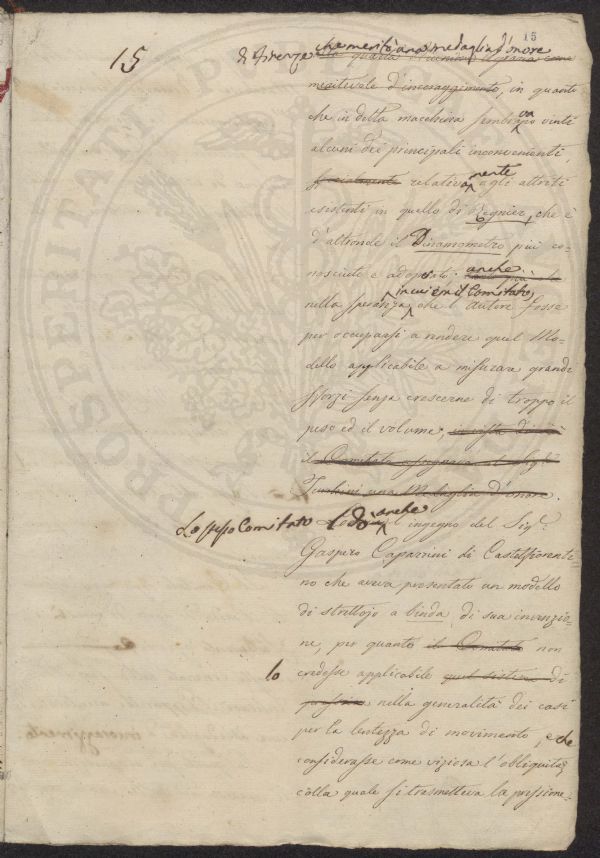 15
15
di Firenze che meritò una medaglia d'onore
meritevole d'incoraggimento, in quanto
che in detta macchina sembrava vinti
alcuni dei principali inconvenienti,
relativamente agli attriti
esistenti in quello di Regnier, che è
d'altronde il Dinamometro più co-
nosciuto e adoprato: anche
nella speranza in cui era il Comitato, che l'autore fosse
per occuparsi a rendere quel Mo-
dello applicabile a misurare grandi
sforzi senza crescerne di troppo il
peso ed il volume,
il Comitato assegnava al Sig.
una Medaglia d'onore.
Lo stesso Comitato lodò anche l'ingegno del Sig.
Gaspero Caparrini di Castelfiorenti-
no che aveva presentato un modello
di strettojo a binda di sua invenzio-
ne, per quanto il Comitato non
lo credesse applicabile quel sistema di
pressione nella generalità dei casi
per la lentezza di movimento, e che
considerasse come viziosa l'obliquità
colla quale si trasmetteva la pressione-
PROSPERITATI PUBLICAE